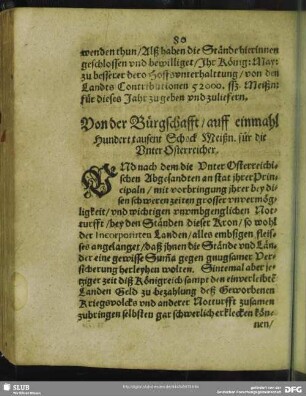 80
wenden thun / Alß haben die Stände hierinnen
geschlossen vnd bewilliget / Ihr König: May:
zu besserer dero Hoffsvnterhalttung / von den
Landts Contributionen 52000. ßß. Meißn:
für dieses Jahr zugeben vnd zuliefern.
Von der Bürgschafft / auff einmahl
Hundert tausent Schock Meißn. für die
Vnter Osterreicher.
VNd nach dem die Vnter Osterreichi-
schen Abgesandten an stat ihrer Prin-
cipaln / mit vorbringung jhrer bey di-
sen schweren zeiten grosser vnvermög-
ligkeit / vnd wichtigen vnvmbgenglichen Not-
turfft / bey den Ständen dieser Kron / so wohl
der Incorporirten Landen / alles embsigen fleis-
ses angelanget / daß jhnen die Stände vnd Län-
der eine gewisse Summa gegen gnugsamer Ver-
sicherung herleyhen wolten. Sintemal aber je-
tziger zeit diß Königreich sampt den einverleibten
Landen Geld zu bezahlung deß Geworbenen
Kriegsvolcks vnd anderer Notturfft zusamen
zubringen selbsten gar schwerlich erklecken kön-
nen /
SLUB
DFG